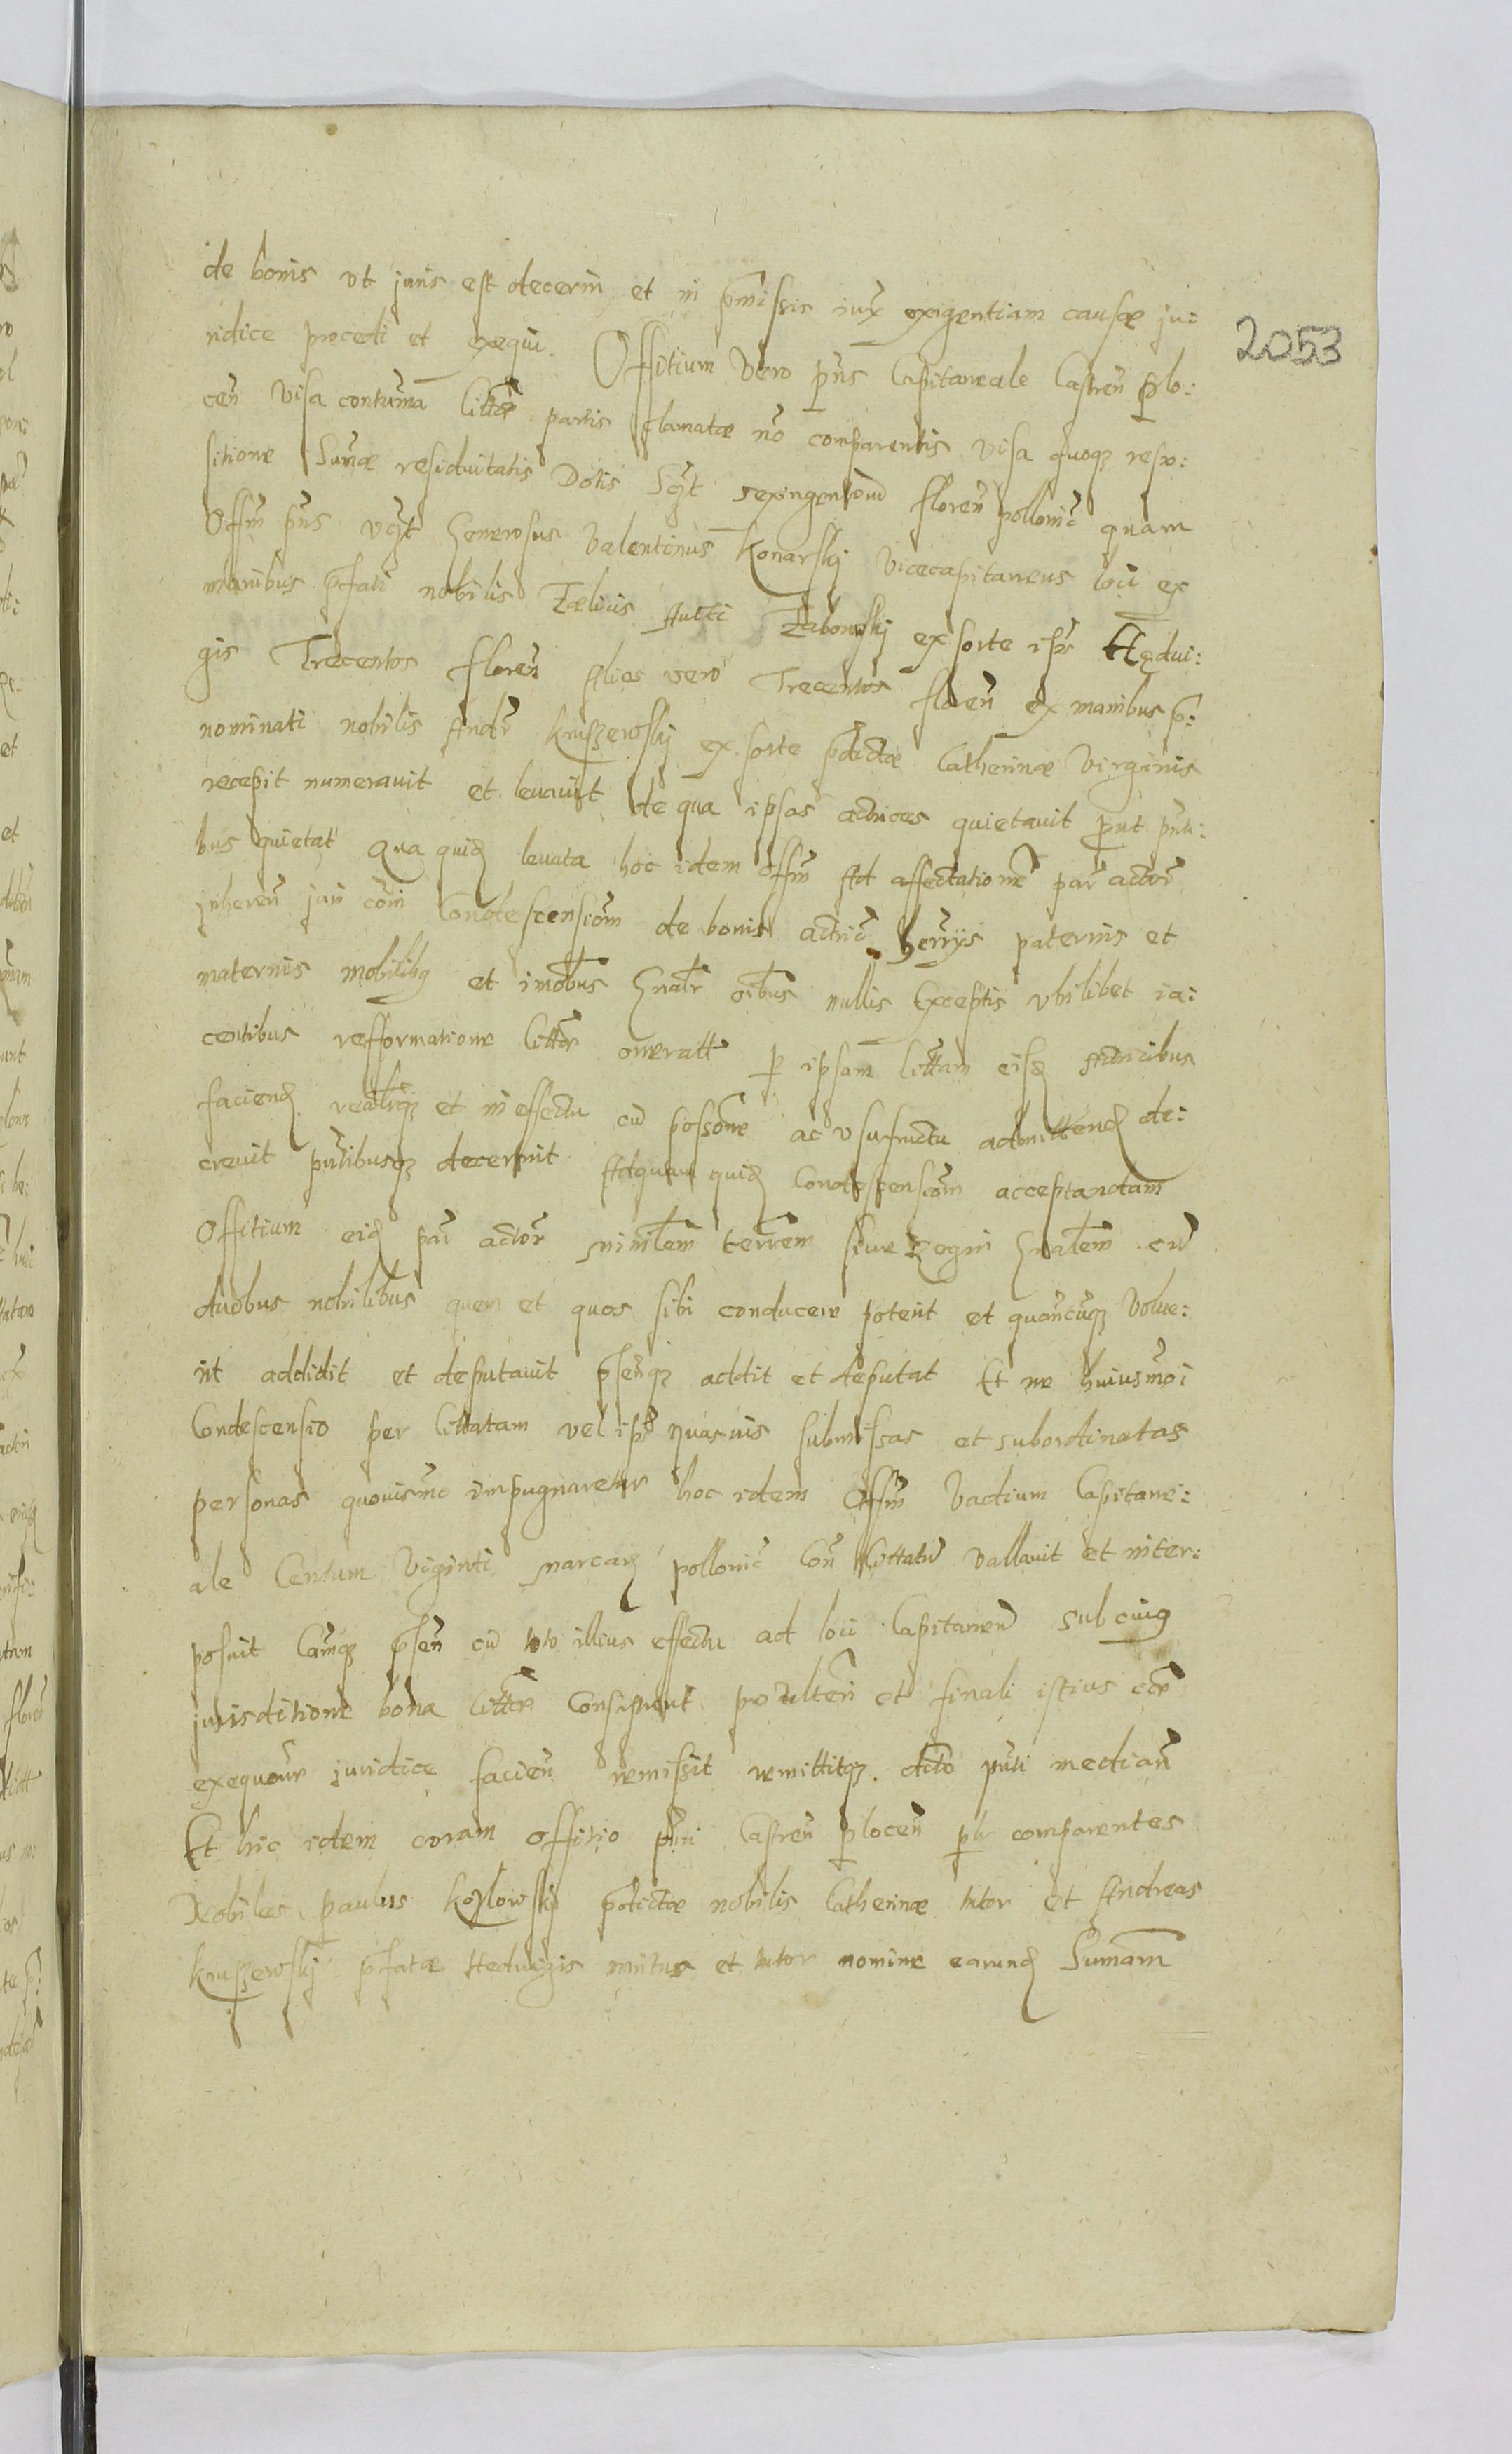 de bonis ut juris est decerni et in p̃missis iux̃ exigentiam causæ ju:
ridice procedi et exequi. Offitium Vero p̃ns Capitaneale Castreñ plo:
ceñ visa contuma͠ Litt͠æ partis clamatæ nõ comparentis visa quoq₃ repo:
sitione Sum̃æ residuitatis Dotis sꝫt sexingentoru͠ floreñ polloniċ quam
Offiũ p̃ns vꝫt Generosus Valentinus Konarskj Vicecapitaneus loci ex
manibus p̃fati nobilis Fælicis Zaborowskj ex sorte ip̃ius Hedui:
gis Trecentos floreñ Alios vero Trecentos floreñ ex manibus p̃:
nominati nobilis Andr̃ Kruszewskj ex sorte p̃dictæ Catherinæ Virginis
recepit numerauit et leuauit de qua ipsas actrices quietauit prout p̃nti:
bus quietat Qua quid͠ leuata hoc idem Offiũ Ad affectatione͠ par͠ actor͠
inhereñ juri com̃i Condescensio͠m de bonis actriċ her͠rijs paternis et
maternis mobilibꝫ et imo͠bus Gnal͠r oĩbus nullis Exceptis vbilibet ia:
centibus refformatione litt͠æ oneratt p̱ ipsam litt͠am eisd͠ Actricibus
faciend͠ realr͠q₃ et in effectu cu͠ posso͠ne ac vsufructu admittend͠ de:
creuit p̃ntibusq₃ decernit Ad quam quid͠ Condescensio͠m acceptandam
Offitium eid͠ par͠ actor͠ minil͠em terr͠em siue Regni Gnal͠em cu͠
duobus nobilibus quem et quos sibi conducere poterit et quandocu͠q₃ volue:
rit addidit et deputauit p̃señq₃ addit et deputat Et ne huiusmo͠i
Condescensio per littatam vel ip̃s quasuis submissas et subordinatas
personas quouismo͠ impugnaretur hoc idem Offiũ Vadium Capitane:
ale Centum Viginti marcar͠ polloniċ Coñ littatu͠ vallauit et inter:
posuit Cam̃q₃ p̃señ cu͠ toto illius effectu ad loci Capitaneu͠ sub cuiꝫ
jurisditione bona litt͠æ consistent pro ulteri͠ et finali istius rei͠
exequo͠ne juridice facieñ remissit remittitq₃ dcto͠ p̃nti mediañ
Et hic idem coram offitio p̃nti Castreñ ploceñ pl͠r comparentes
Nobiles paulus Kozlowskj p̃dictæ nobilis Catherinæ tutor et Andreas
Kruszewskj p̃fatæ Heduigis maritus et tutor nomine earund͠ Sum̃am
2053